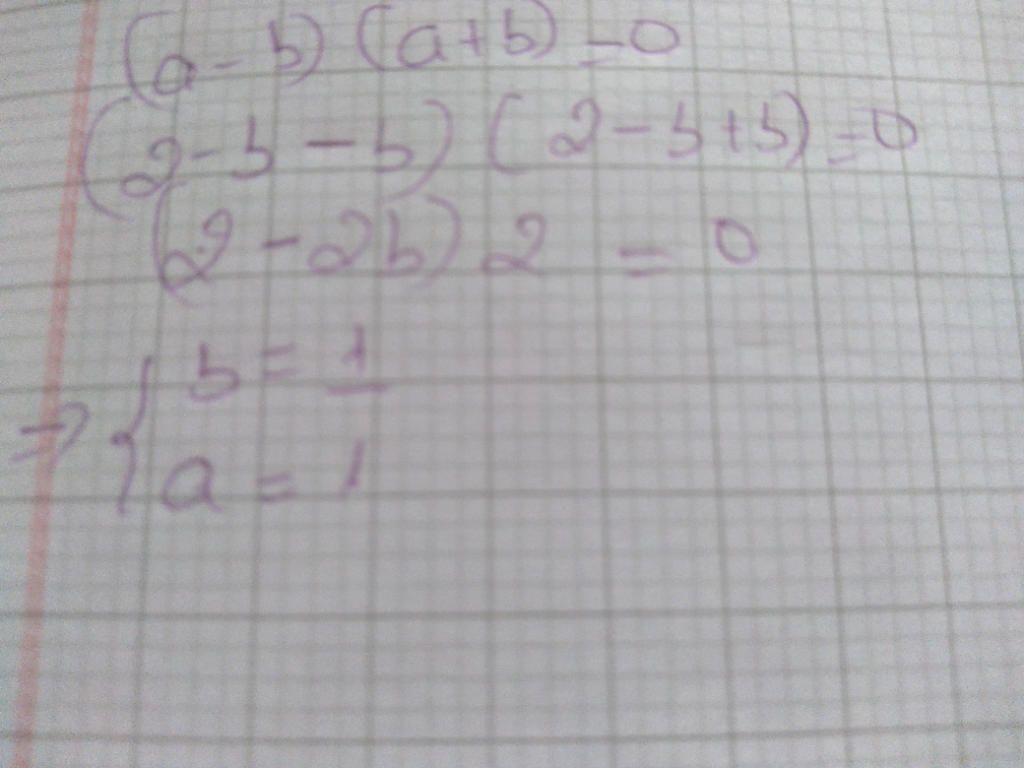 (a - b) (a + b) = 0
(2 - b - b) (2 - b + b) = 0
(2 - 2b) 2 = 0
⇒ { b = 1
a = 1